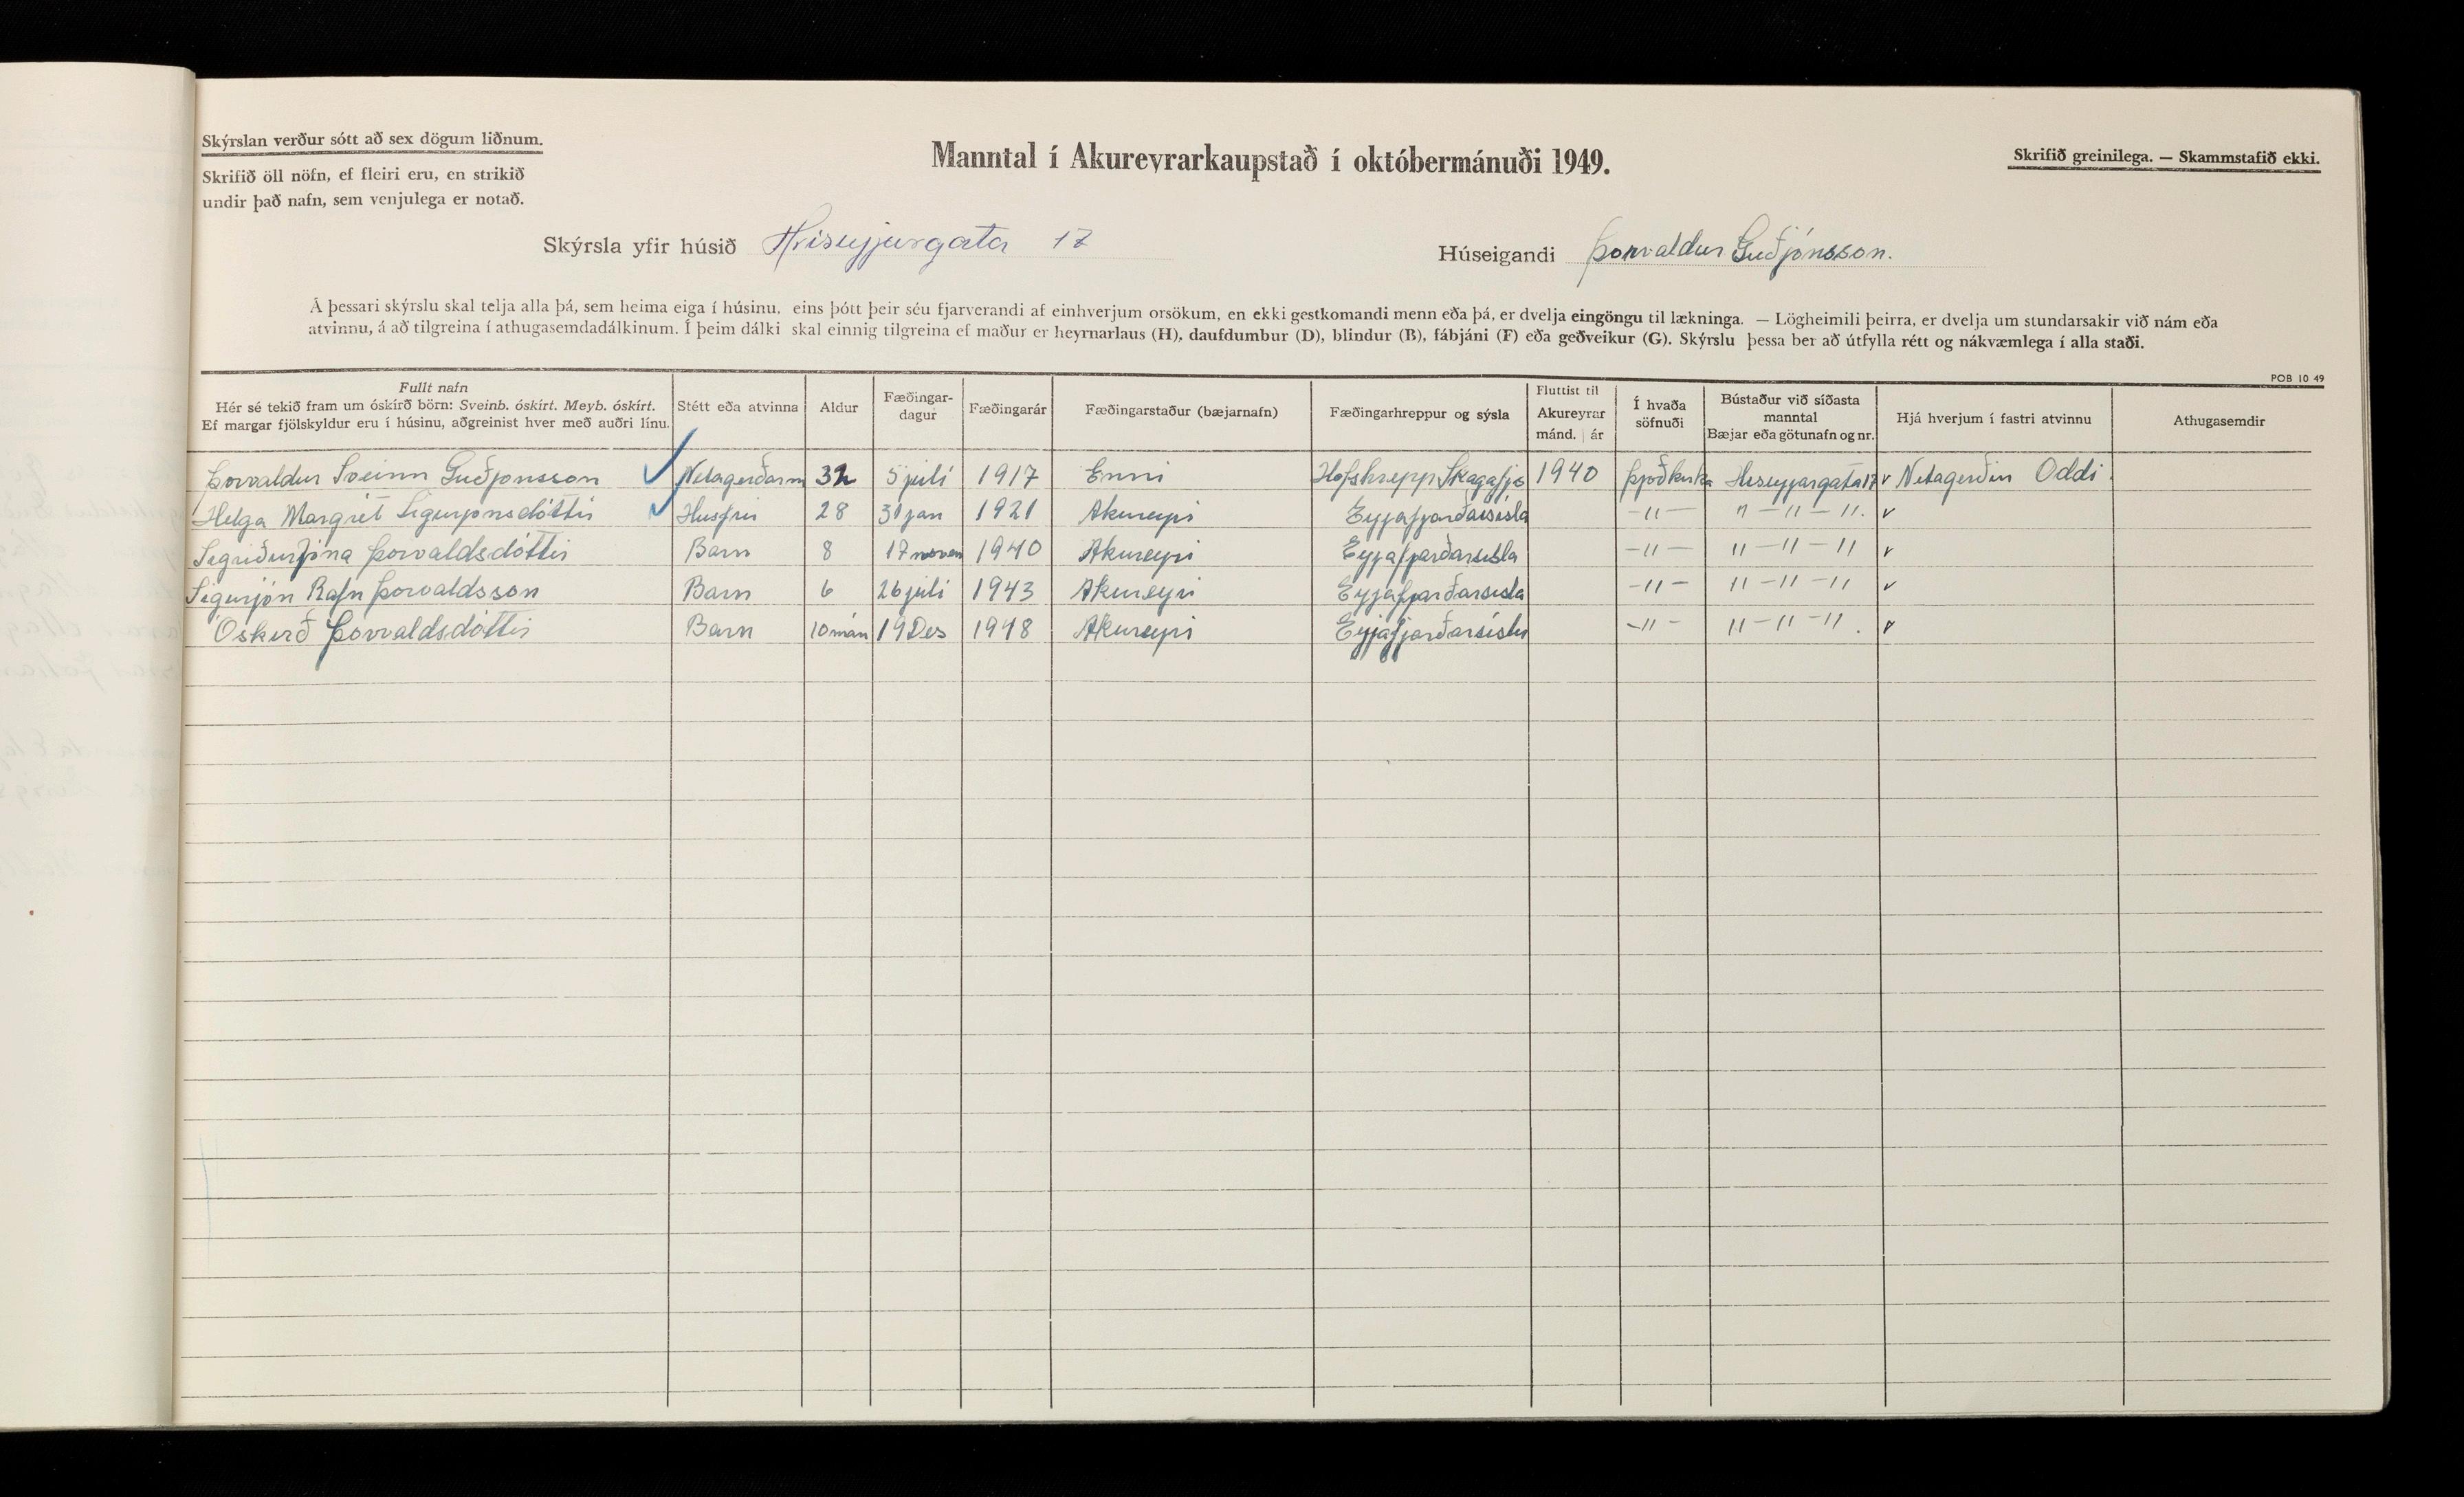 Skýrslan verður sótt að sex dögum liðnum.
Skrifið öll nöfn, ef fleiri eru, en strikið
undir það nafn, sem venjulega er notað.
Manntal í Akureyrarkaupstað í októbermánuði 1949.
Skrifið greinilega. — Skammstafið ekki.
Skýrsla yfir húsið Hríseyjargata 17
Húseigandi Þorvaldur Guðjónsson.
Á þessari skýrslu skal telja alla þá, sem heima eiga í húsinu, eins þótt þeir séu fjarverandi af einhverjum orsökum, en ekki gestkomandi menn eða þá, er dvelja eingöngu til lækninga. — Lögheimili þeirra, er dvelja um stundarsakir við nám eða
atvinnu, á að tilgreina í athugasemdadálkinum. Í þeim dálki skal einnig tilgreina ef maður er heyrnarlaus (H), daufdumbur (D), blindur (B), fábjáni (F) eða geðveikur (G). Skýrslu þessa ber að útfylla rétt og nákvæmlega í alla staði.
POB 10 49
Fullt nafn
Hér sé tekið fram um óskírð börn: Sveinb. óskírt. Meyb. óskírt.
Ef margar fjölskyldur eru í húsinu, aðgreinist hver með auðri línu.
Stétt eða atvinna
Aldur
Fæðingar-
dagur
Fæðingarár
Fæðingarstaður (bæjarnafn)
Fæðingarhreppur og sýsla
Fluttist til
Akureyrar
mánd. | ár
Í hvaða
söfnuði
Bústaður við síðasta
manntal
Bæjar eða götunafn og nr.
Hjá hverjum í fastri atvinnu
Athugasemdir
Þorvaldur Sveinn Guðjonsson Netagerðarm 32 5 júlí 1917 Enni Hofshrepp Skagafjs 1940 Þjóðkirkja Hriseyjargata 17 v Netagerðin Oddi.
Helga Margrét Sigurjonsdóttir Husfrú 28 31 jan 1921 Akureyri Eyjafjarðarsísla -11- 11-11-11. v
Sigríður Jóna Þorvaldsdóttir Barn 8 17 noven 1940 Akureyri Eyjafjarðarsísla -11- 11-11-11 v
Sigurjón Rafn Þorvaldsson Barn 6 26 júlí 1943 Akureyri Eyjafjarðarsísla -11- 11-11-11 v
Óskírð Þorvaldsdóttir Barn 10 mán 19 Des 1948 Akureyri Eyjafjarðarsíslu -11- 11-11-11. v